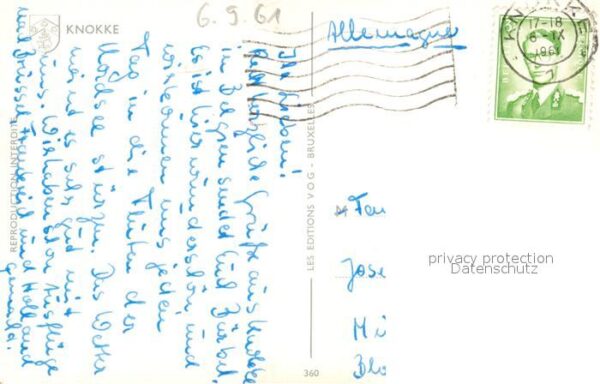 KNOKKE
6.9.61
Allemagne
Ihr Lieben!
Recht herzliche Grüße aus Knokke
in Belgien sendet Euch Bärbel.
Es ist hier wunderschön und
wir können uns jeden
Tag in die Fluten der
Nordsee stürzen. Das Wetter
meint es sehr gut mit
uns. Wir haben schon Ausflüge
nach Brüssel, und Holland
gemacht.
REPRODUCTION INTERDITE
LES EDITIONS V O G - BRUXELLES
360
Fam
Jose
Mü
Blo
KNOKKE
17-18
6-IX
1961
privacy protection
Datenschutz